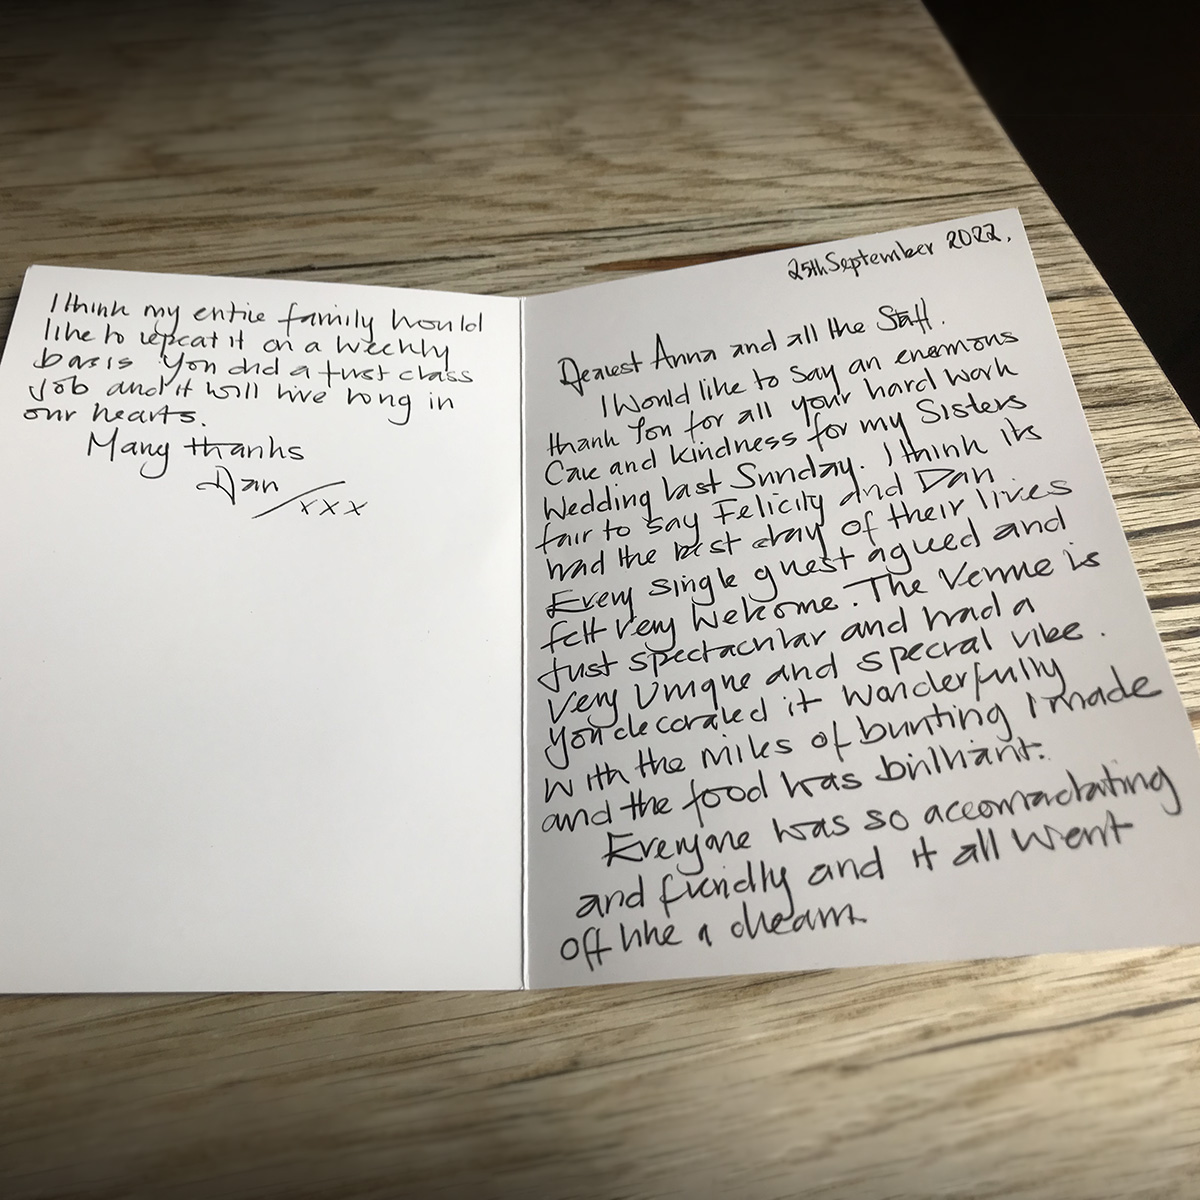 25th September 2022.
Dearest Anna and all the Staff.
I would like to say an enormous
thank you for all your hard work
Care and kindness for my Sisters
Wedding last Sunday. I think its
fair to say Felicity and Dan
had the best day of their lives
Every single guest agreed and
felt very welcome. The Venue is
just spectacular and had a
very unique and special vibe.
you decorated it wonderfully
with the miles of bunting I made
and the food was brilliant.
Everyone was so accomodating
and friendly and it all went
off like a dream
I think my entire family would
like to repeat it on a weekly
basis. You did a first class
job and it will live long in
our hearts.
Many thanks
xxx